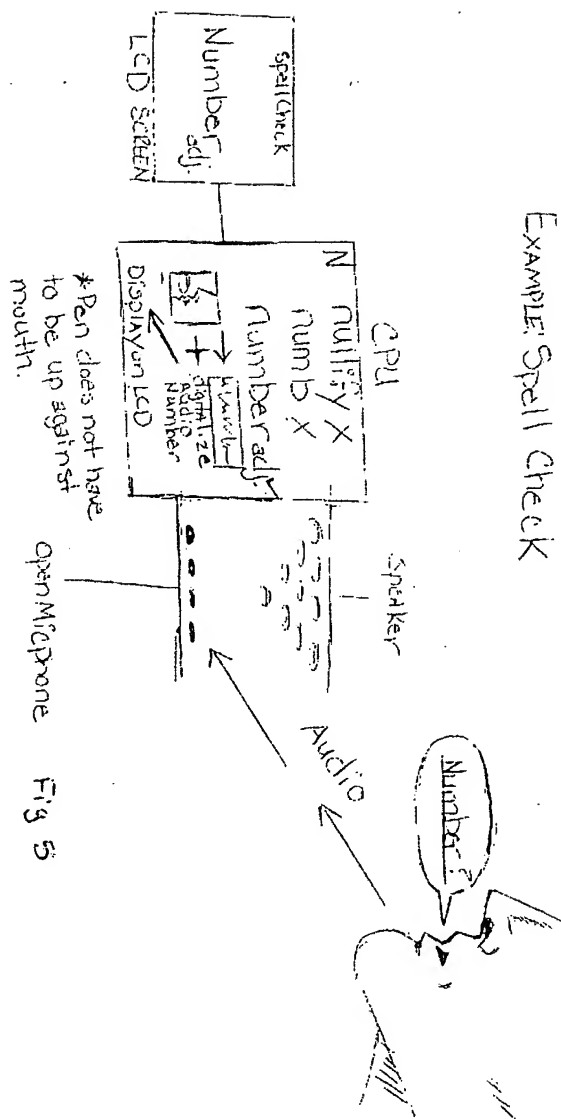 EXAMPLE: Spell Check
Spell Check
Number
adj.
LCD SCREEN
CPU
N
nullify X
numb X
number adj.
digitalize
Audio
Number
DISplay on LCD
*Pen does not have
to be up against
mouth.
Speaker
Open Micphone
Audio
Number?
Fig 5